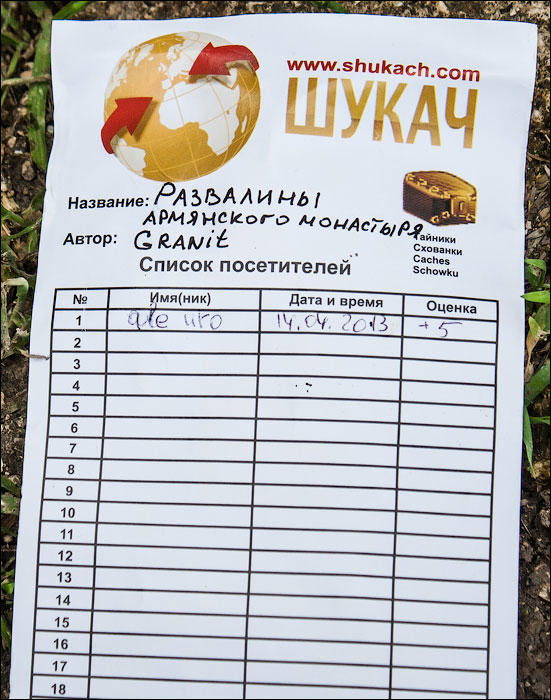 www.shukach.com
ШУКАЧ
Название: РАЗВАЛИНЫ
АРМЯНСКОГО МОНАСТЫРЯ
Автор: GRANit
Тайники
Схованки
Caches
Schowku
Список посетителей
№ Имя(ник) Дата и время Оценка
1 14.04.2013 +5
2
3
4
5
6
7
8
9
10
11
12
13
14
15
16
17
18